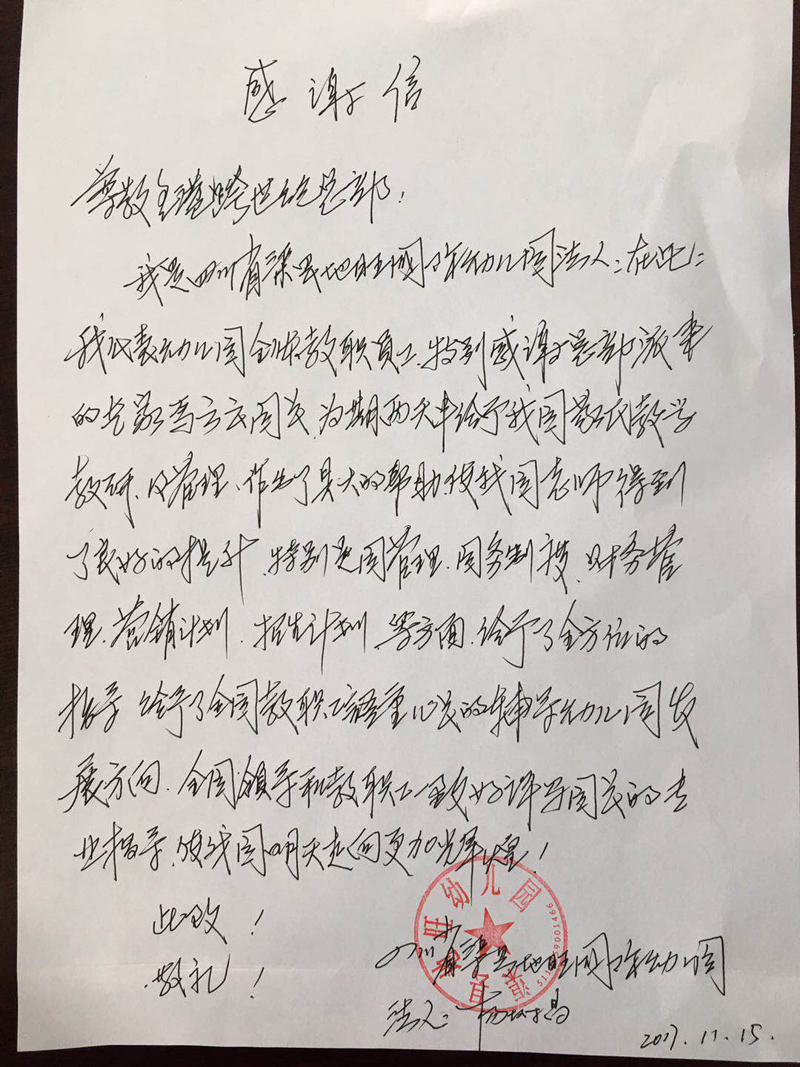 感谢信
尊敬全港跨世纪总部:
我是四川省渠县地旺国际幼儿园法人:在此
我代表幼儿园全体教职员工,特别感谢总部派来
的专家高立云园长,为期两天半给予我园蒙氏教学
教研,及管理、作出了具大的帮助,使我园老师得到
了良好的提升,特别是园管理、园务制度、财务管
理、营销计划、招生计划等方面,给予了全方位的
指导,给予了全园教职工语重心长的辅导幼儿园发
展方向.全园领导和教职工一致好评 园长的专
业指导,使我园明天走向更加辉煌!
此致!
敬礼!
四川省渠县地旺国际幼儿园
法人:
2017.11.15.
幼儿园